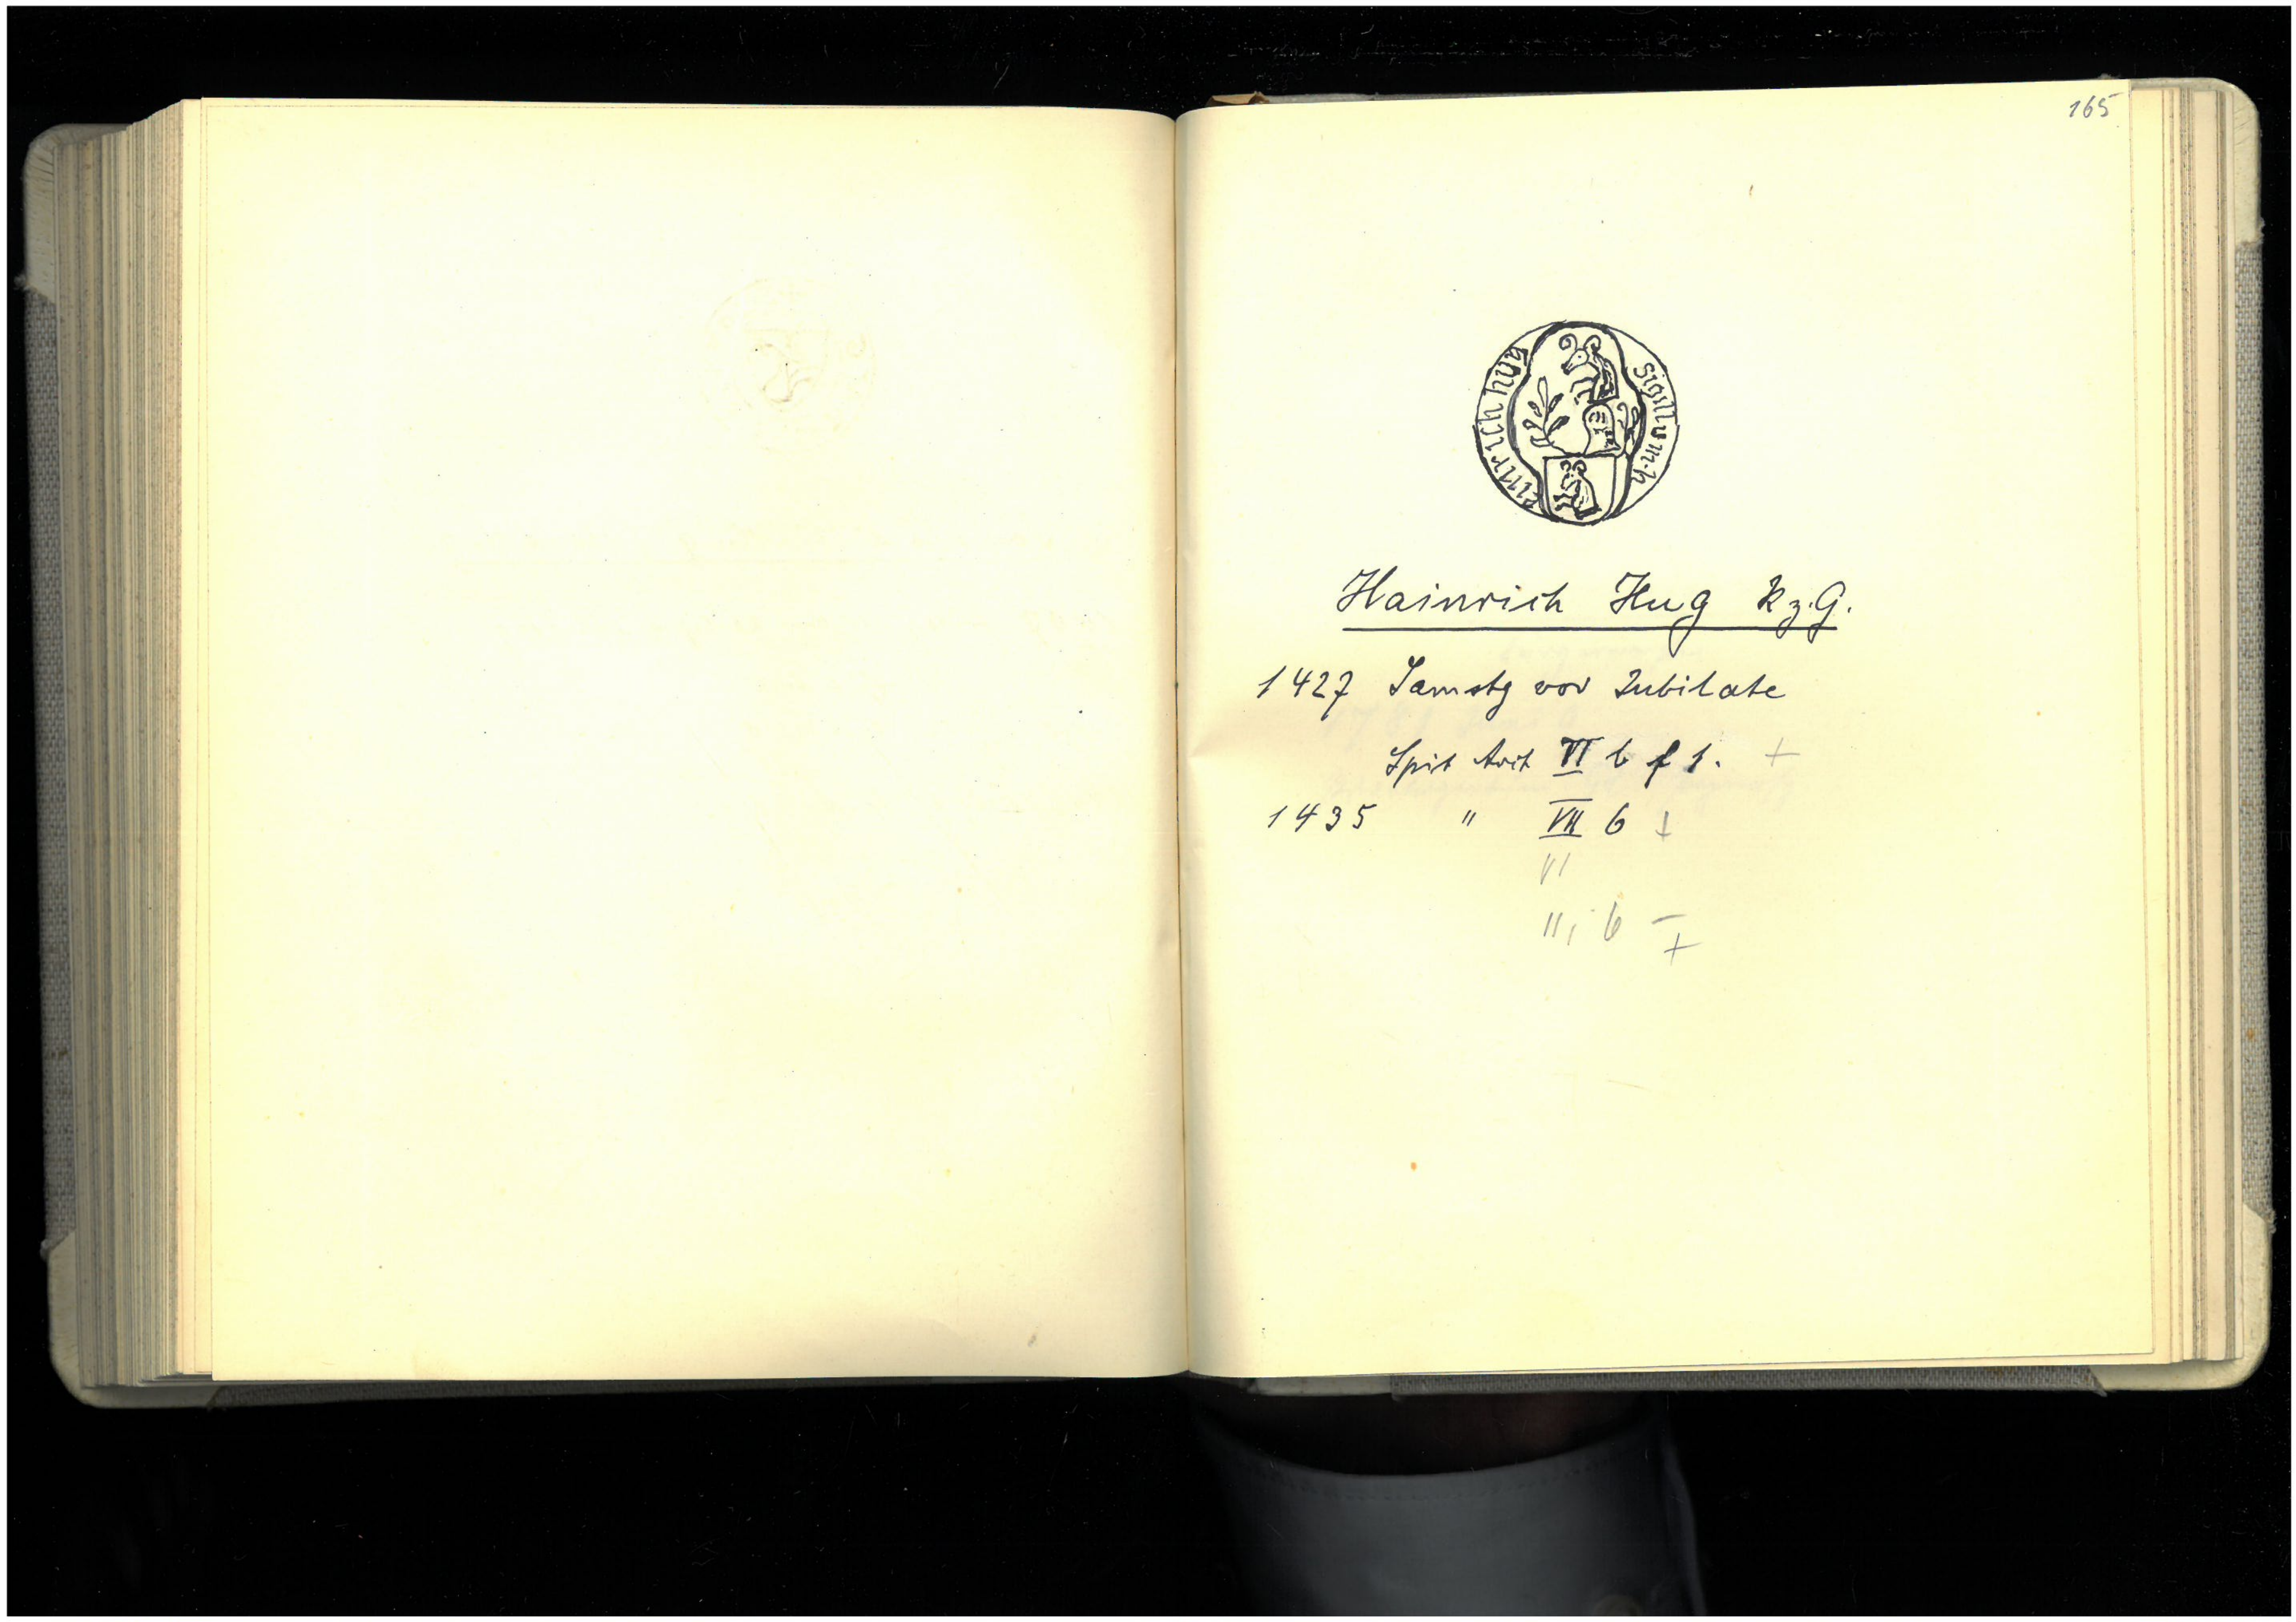 165
sigillum · h
einrich hug
Hainrich Hug R z. G.
1427 Samstg vor Jubilate
Spit Arch VI b f 1. +
1435 " VII b +
VI
", b -
+